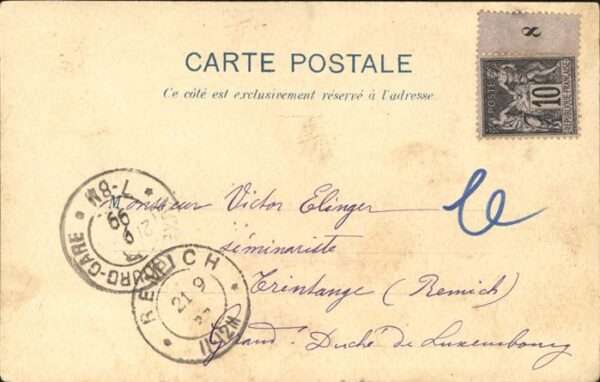 8
CARTE POSTALE
Ce côté est exclusivement réservé à l'adresse.
POSTES
10
Monsieur Victor Elinger
séminariste
Trintange (Remich)
Grand Duché de Luxembourg
Le
URG-GARE
7-8M
99
REMICH
21 9